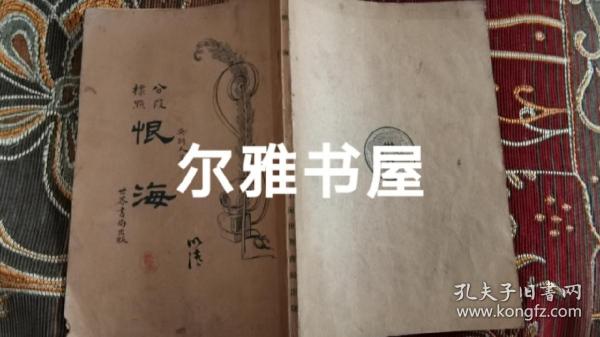 分段
標點
恨海
世界書局出版
尔雅书屋
孔夫子旧书网
www.kongfz.com